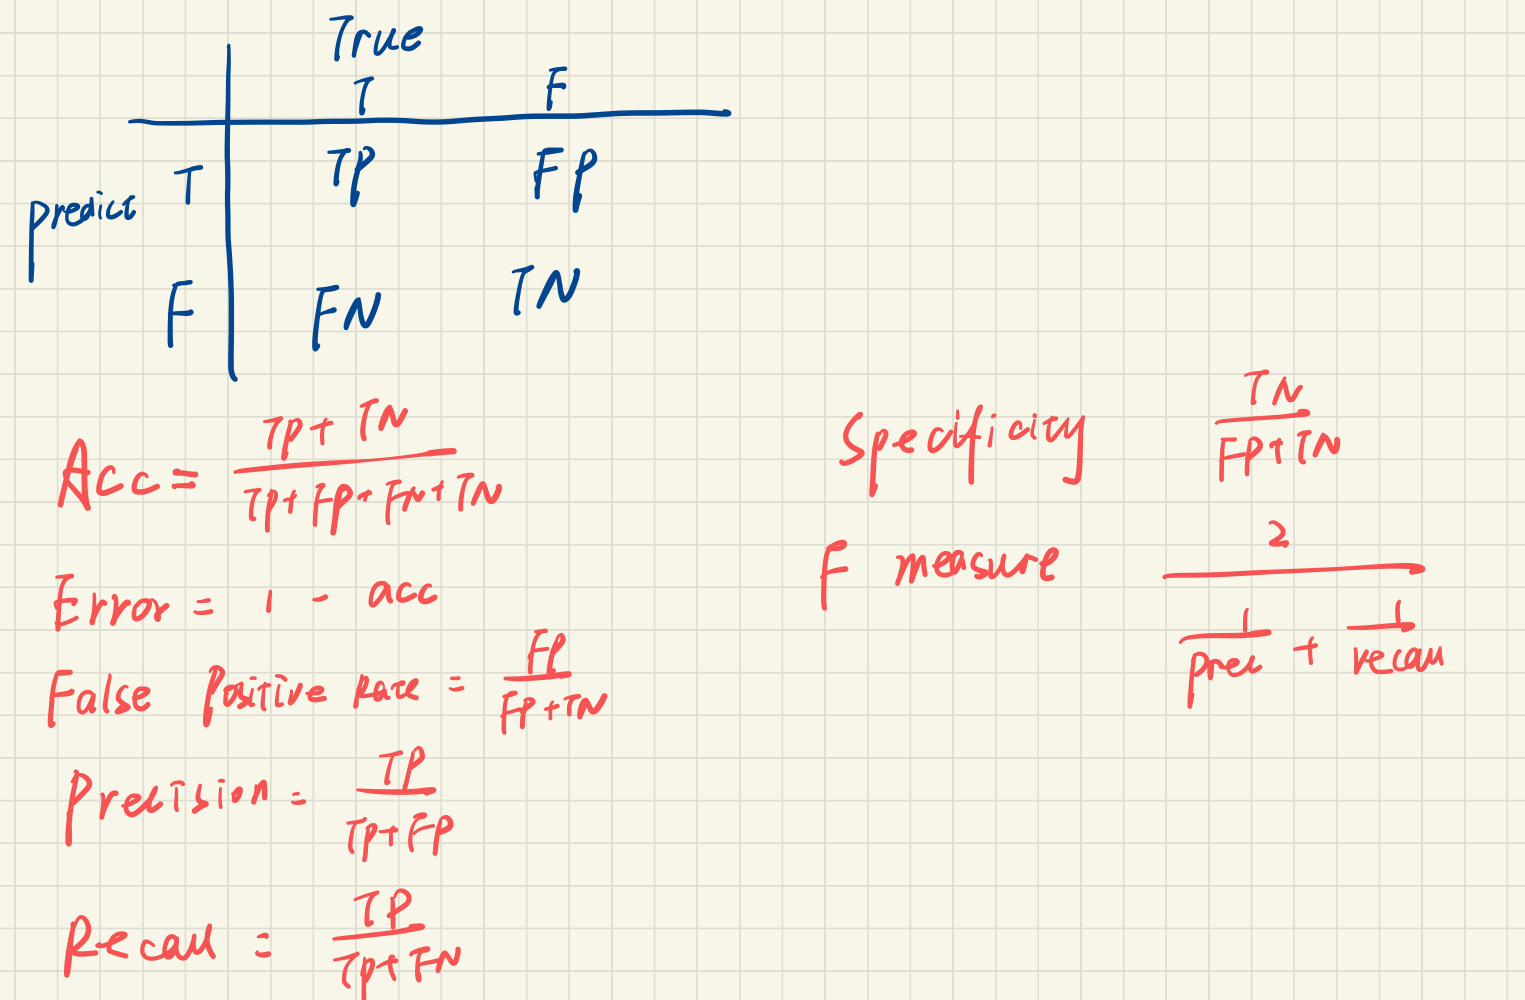 True
T F
predict T TP FP
F FN TN
Acc = (TP + TN) / (TP + FP + FN + TN)
Error = 1 - acc
False Positive Rate = FP / (FP + TN)
Precision = TP / (TP + FP)
Recall = TP / (TP + FN)
Specificity TN / (FP + TN)
F measure 2 / (1/prec + 1/recall)